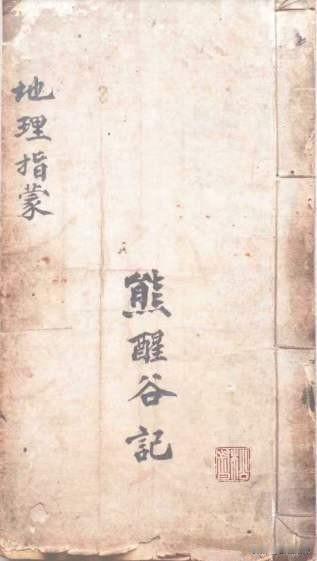 地理指蒙
熊醒谷記